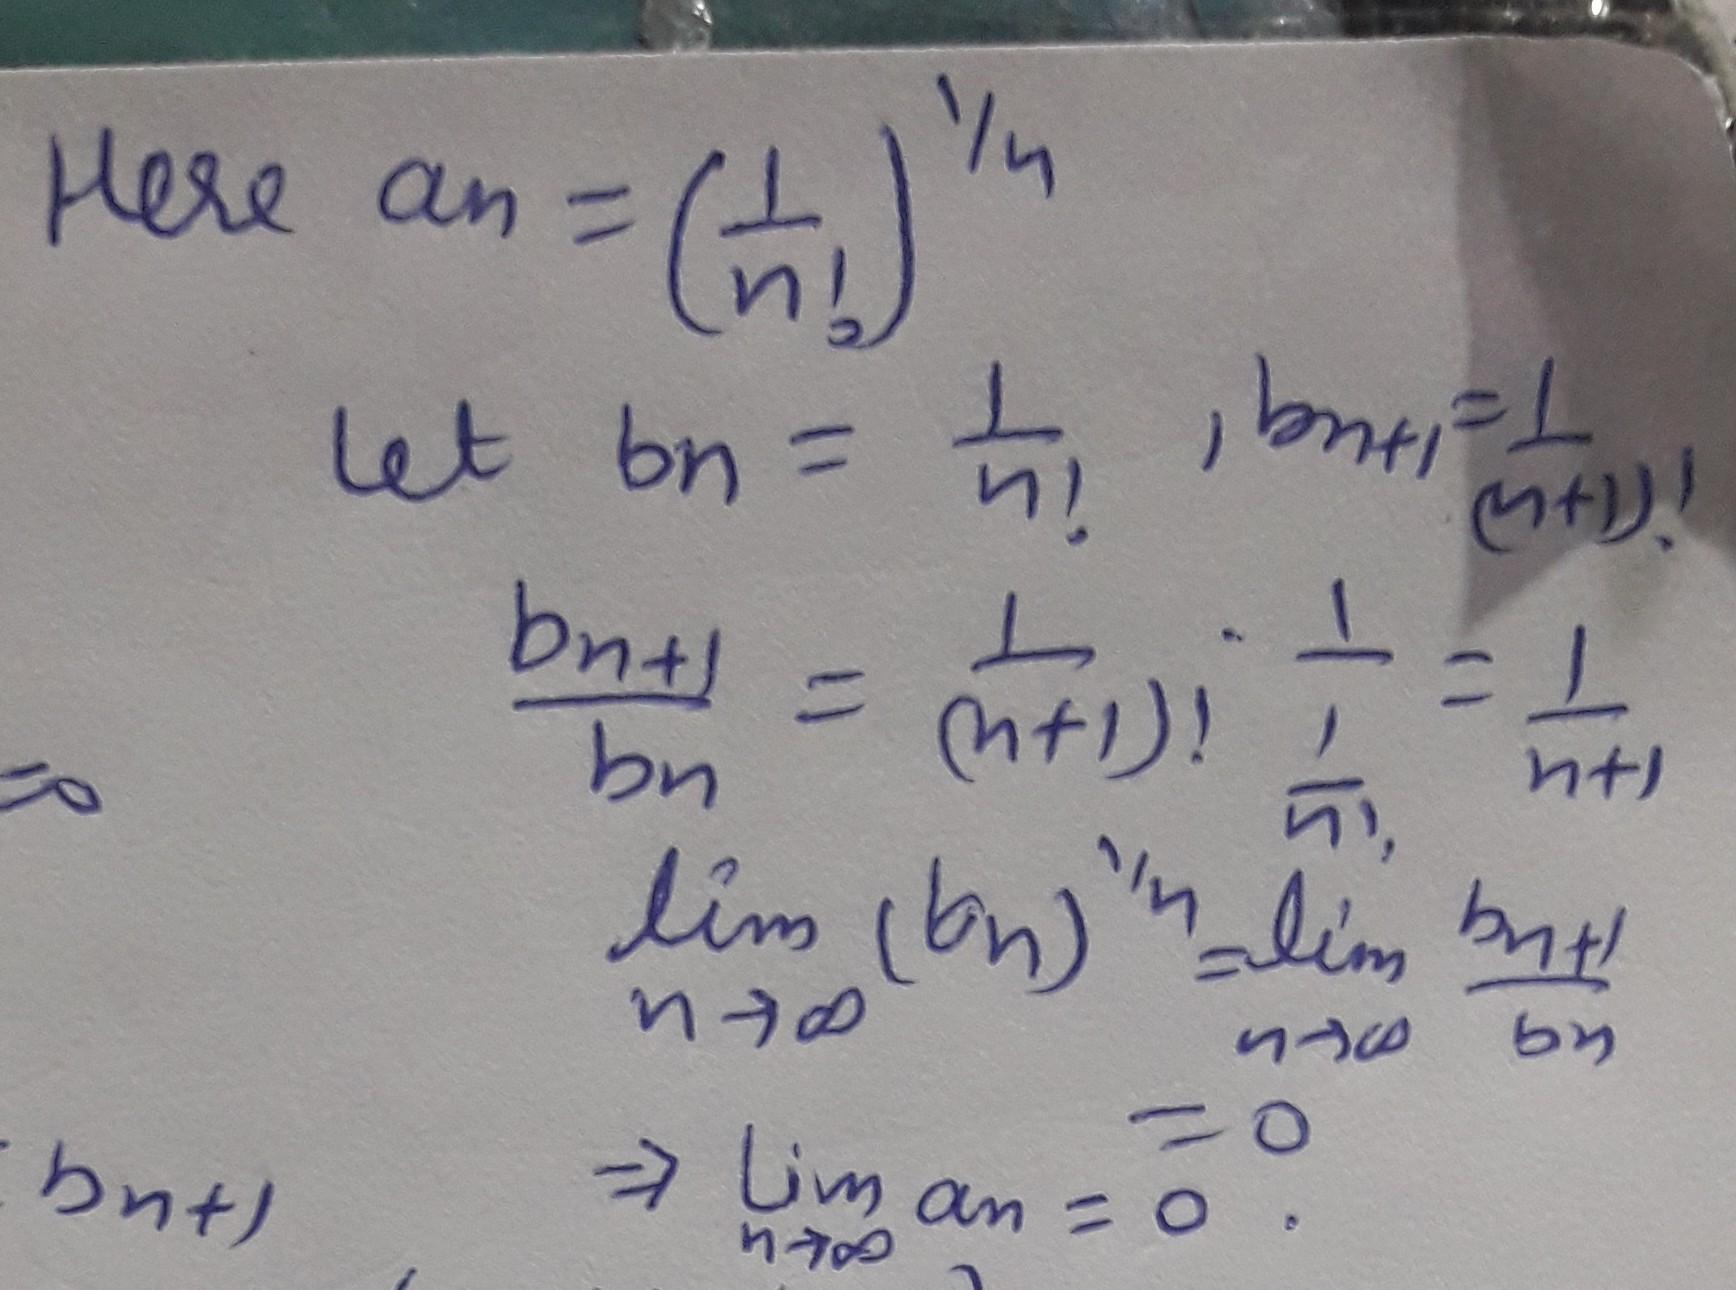 Here an = (1/n!)^1/n
Let bn = 1/n! , bn+1 = 1/(n+1)!
bn+1/bn = 1/(n+1)! · 1/(1/n!) = 1/n+1
=0
lim n→∞ (bn)^1/n = lim n→∞ bn+1/bn
= 0
bn+1 ⇒ lim n→∞ an = 0 .